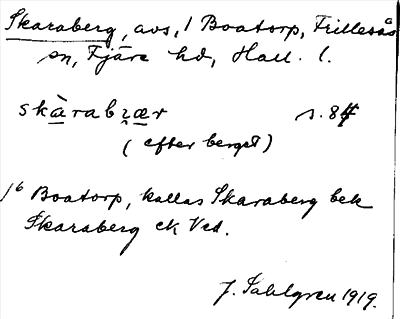 Skaraberg, avs, 1 Boatorp, Frillesås
sn, Fjäre hd, Hall. l.
skàrabʀær s. 84
(efter berget)
1⁶ Boatorp, kallas Skaraberg bek
Skaraberg ck Ved.
J. Sahlgren 1919.